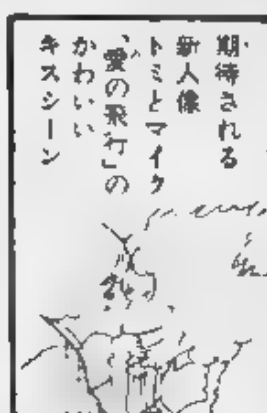 期待される
新人像
トミとマイク
「愛の飛行」の
かわいい
キスシーン